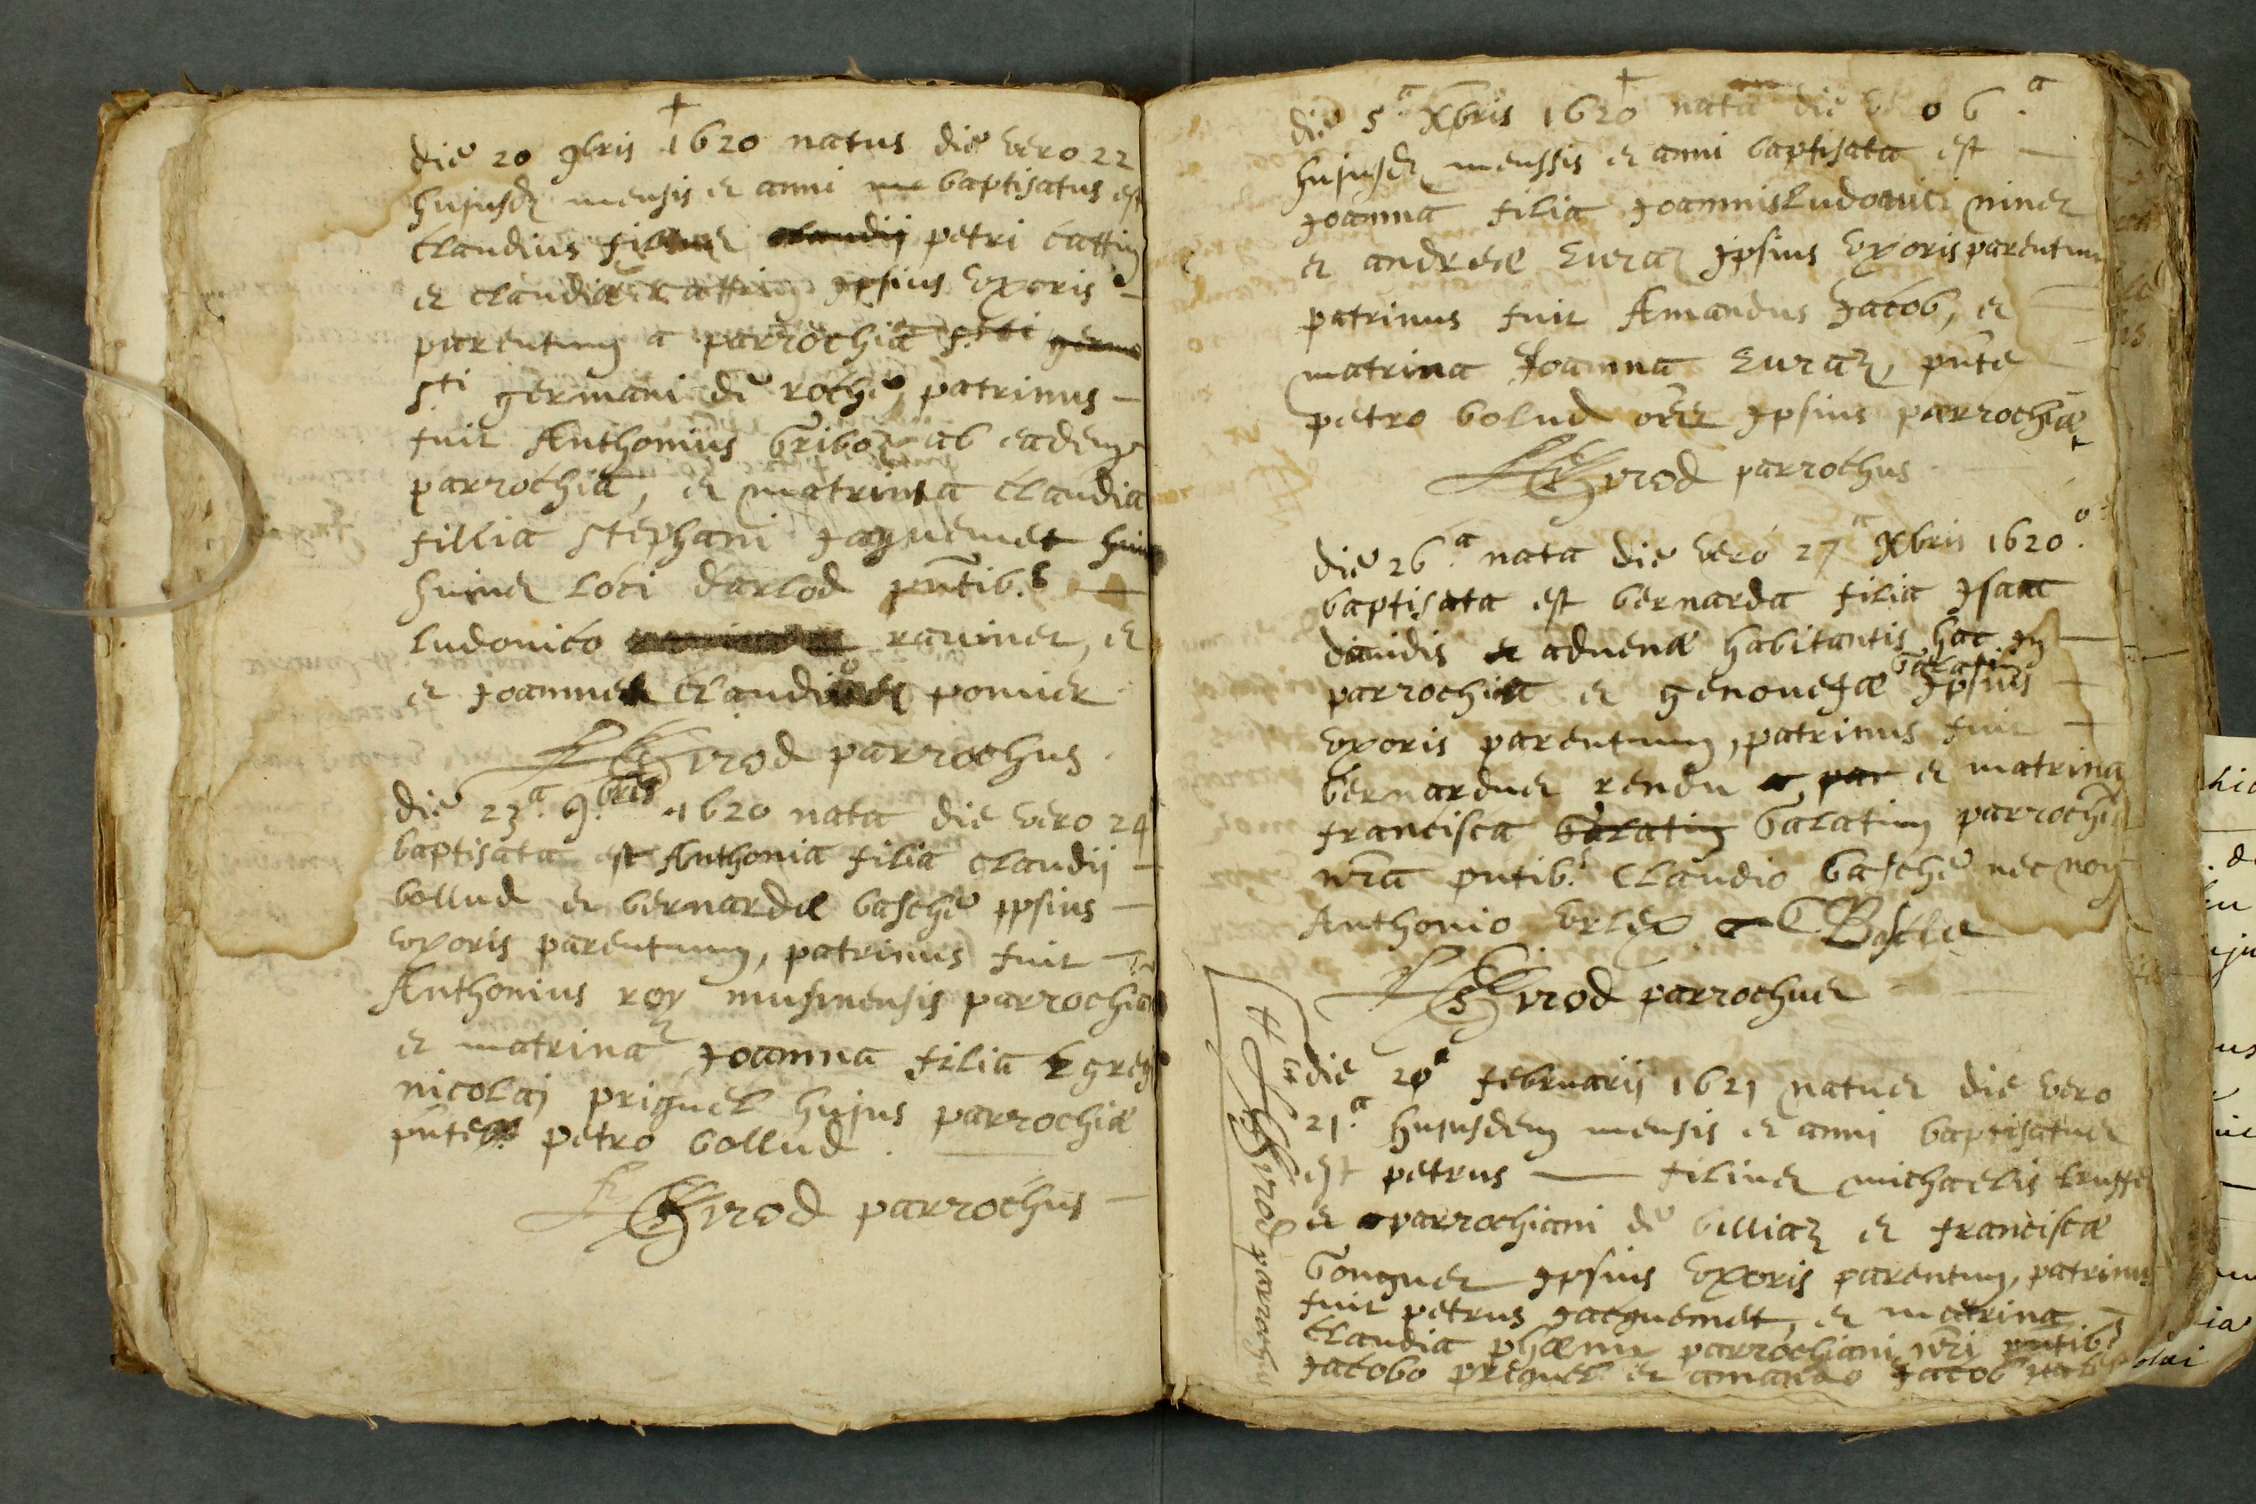 die 20 9bris 1620 natus die vero 22
hujusd mensis et anni baptisatus est
Claudius filius claudij petri cattin
et claudiæ cattin ipsius uxoris
parentum a parrochia s.ti germa
s.ti germani de roche, patrinus
fuit Anthonius Griboz ab eadem
parrochia, et matrina claudia
fillia stephani Jaquemet huius
huius loci darlod pntib.s
ludovico raviner, et
et Joanne Claudio pomier
Girod parrochus
die 23.a 9.bris 1620 nata die vero 24
baptisata est Anthonia filia claudij
bollud et bernardæ basche ipsius
uxoris parentum, patrinus fuit
Anthonius roy musinensis parrochiæ
et matrina Joanna filia Egregij
nicolaj priquel hujus parrochiæ
pnte petro bollud
Girod parrochus
die 5.a Xbris 1620 nata die vero 6.a
hujusd menssis et anni baptisata est
Joanna filia Joannis Ludovici niner
et andreæ Euraz Ipsius uxoris parentum
patrinus fuit Amandus Jacob, et
matrina Joanna Euraz, pnte
petro bolud Ipsius parrochiæ
Girod parrochus
die 26.a nata die vero 27.a Xbris 1620.o
baptisata est bernarda filia Isaac
davidis et advenæ habitantis hac in
parrochia et genovefæ Galatin Ipsius
uxoris parentum, patrinus fuit
bernardus rendu a par et matrina
francisca Galatin Galatin parrochiæ
nra pntib.s Claudio basche nec non
Anthonio
Girod parrochus
die 20a februarij 1621 natus die vero
21.a hujusdem mensis et anni baptisatus
est petrus filius michaelis truffet
et parrochiani de billiaz et franciscæ
Gonguet Ipsius uxoris parentum, patrinus
fuit petrus Jacquemet, et matrina
Claudia parrochiani nri pntib.s
Jacobo priquel et amando Jacob
Girod parrochus